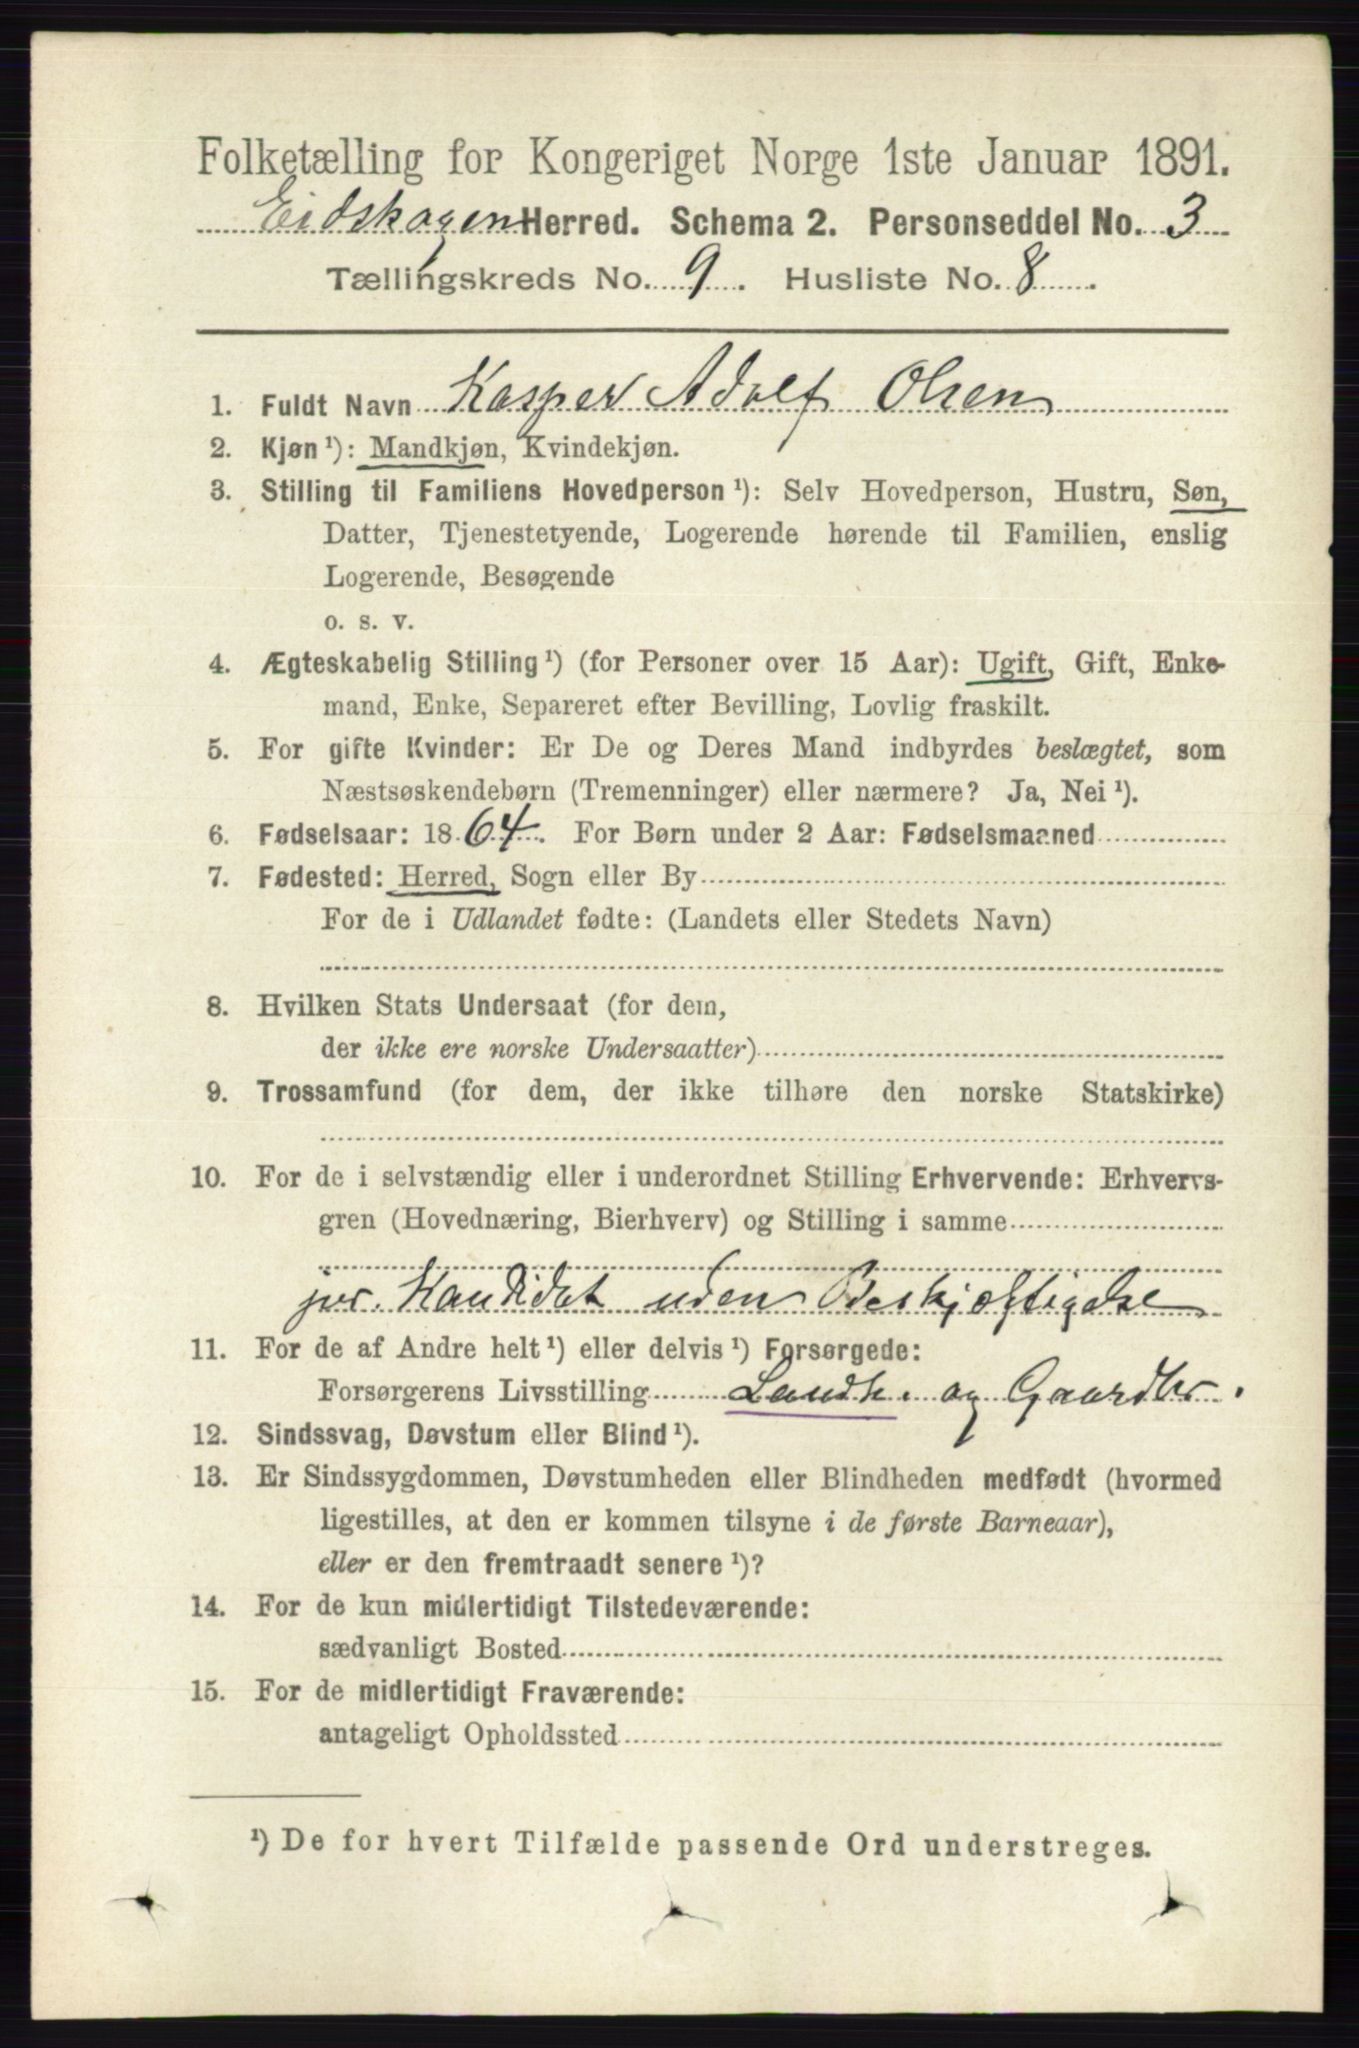 Folketælling for Kongeriget Norge 1ste Januar 1891.
Eidskogen Herred. Schema 2. Personseddel No. 3
Tællingskreds No. 9. Husliste No. 8.
1. Fuldt Navn Kasper Adolf Olsen
2. Kjøn ¹): Mandkjøn, Kvindekjøn.
3. Stilling til Familiens Hovedperson ¹): Selv Hovedperson, Hustru, Søn,
Datter, Tjenestetyende, Logerende hørende til Familien, enslig
Logerende, Besøgende
o. s. v.
4. Ægteskabelig Stilling ¹) (for Personer over 15 Aar): Ugift, Gift, Enke-
mand, Enke, Separeret efter Bevilling, Lovlig fraskilt.
5. For gifte Kvinder: Er De og Deres Mand indbyrdes beslægtet, som
Næstsøskendebørn (Tremenninger) eller nærmere? Ja, Nei ¹).
6. Fødselsaar: 1864. For Børn under 2 Aar: Fødselsmaaned
7. Fødested: Herred, Sogn eller By
For de i Udlandet fødte: (Landets eller Stedets Navn)
8. Hvilken Stats Undersaat (for dem,
der ikke ere norske Undersaatter)
9. Trossamfund (for dem, der ikke tilhøre den norske Statskirke)
10. For de i selvstændig eller i underordnet Stilling Erhvervende: Erhvervs-
gren (Hovednæring, Bierhverv) og Stilling i samme
jur. Kandidat uden Beskjæftigelse
11. For de af Andre helt ¹) eller delvis ¹) Forsørgede:
Forsørgerens Livsstilling Landh. og Gaardbr.
12. Sindssvag, Døvstum eller Blind ¹).
13. Er Sindssygdommen, Døvstumheden eller Blindheden medfødt (hvormed
ligestilles, at den er kommen tilsyne i de første Barneaar),
eller er den fremtraadt senere ¹)?
14. For de kun midlertidigt Tilstedeværende:
sædvanligt Bosted
15. For de midlertidigt Fraværende:
antageligt Opholdssted
¹) De for hvert Tilfælde passende Ord understreges.